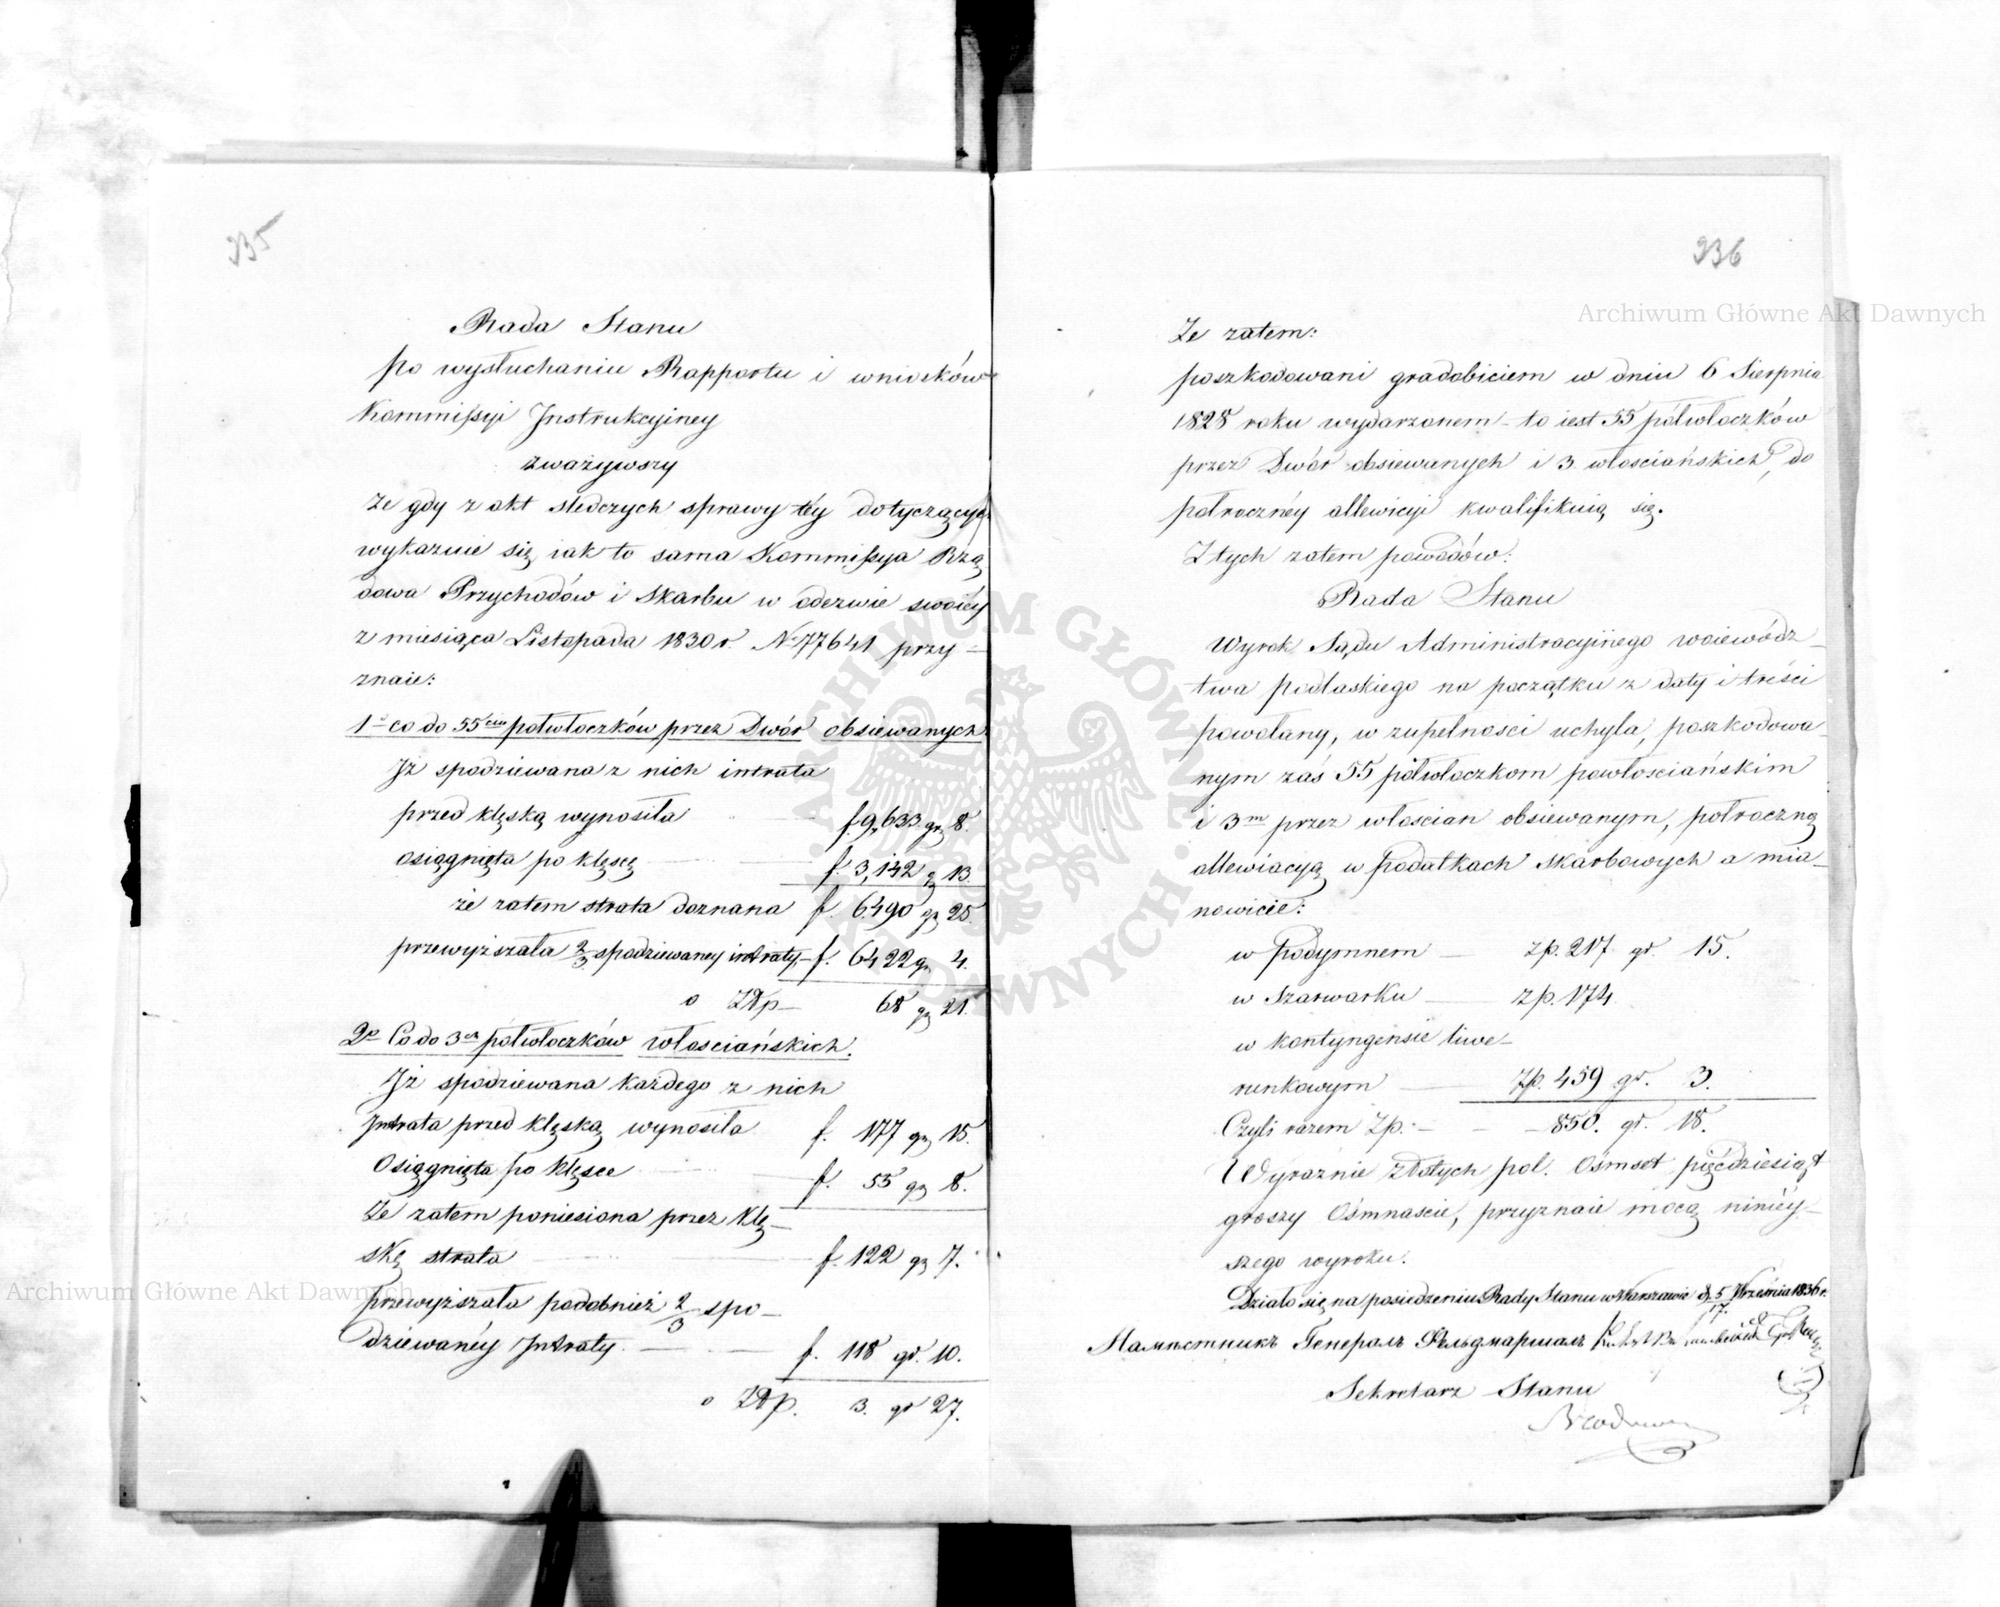 335
Rada Stanu
po wysłuchaniu Rapportu i wniosków
Kommissyi Instrukcyiney
zważywszy
że gdy z akt sledczych sprawy téy dotyczących
wykazuie się iak to sama Kommissya Rzą
dowa Przychodów i Skarbu w odezwie swoiéy
z miesiąca Listopada 1830 r. No 77641 przy-
znaie:
1o co do 55ciu połwłoczków przez Dwór obsiewanych
Iż spodziewana z nich intrata
przed klęską wynosiła f. 9,633 gr 8.
osiągnięta po klęscę f. 3,142 gr 13.
że zatem strata doznana f. 6490 gr 25.
przewyższała 2/3 spodziewaney intraty f. 6422 gr 4.
o Złp 68 gr 21.
2o Co do 3ch połwłoczków włosciańskich.
Iż spodziewana każdego z nich
Intrata przed klęską wynosiła f. 177 gr 15.
Osiągnięta po klęsce f. 55 gr 8.
Ze zatem poniesiona przez klę-
skę strata f. 122 gr 7.
przewyższała podobnież 2/3 spo-
dziewanéy Intraty f. 118 gr. 10.
o Złp. 3. gr 27.
336
Ze zatem:
poszkodowani gradobiciem w dniu 6 Sierpnia
1828 roku wydarzonem - to iest 55 połwłoczków
przez Dwór obsiewanych i 3 włosciańskich, do
połrocznéy allewicyi kwalifikuią się.
Z tych zatem powodów:
Rada Stanu
Wyrok Sądu Administracyinego woiewódz-
twa podlaskiego na początku z daty i treści
powołany, w zupełnosci uchyla, poszkodowa-
nym zaś 55 półwłoczkom powłosciańskim
i 3m przez włoscian obsiewanym, połroczną
allewiacyą w podatkach Skarbowych a mia-
nowicie:
w podymnem zp. 217 gr. 15.
w Szarwarku zp. 174
w kontyngensie liwe-
runkowym zp. 459 gr. 3.
Czyli razem Zp. - - 850. gr. 18.
Wyraźnie złotych pol. Ośmset pięćdziesiąt
groszy Ośmnaście, przyznaie mocą ninieÿ-
szego wyroku.
Działo się na posiedzeniu Rady Stanu w Warszawie d. 5/17 Września 1836 r.
Намѣстникъ Генералъ Фельдмаршалъ
Sekretarz Stanu
Archiwum Główne Akt Dawnych
Archiwum Główne Akt Dawnych
ARCHIWUM GŁÓWNE AKT DAWNYCH